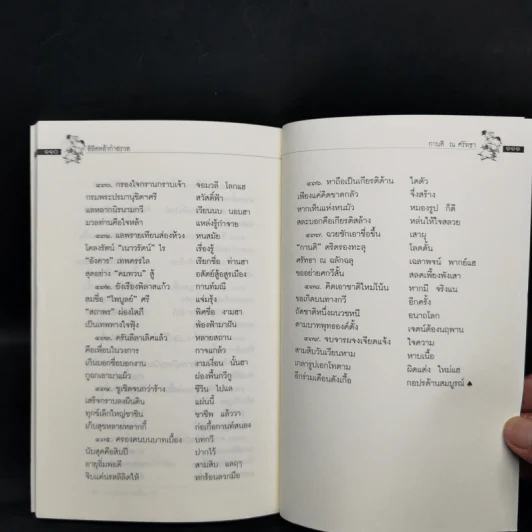 ๑๑๐ ลิลิตหล้ากำสรวล
๔๓๐. กรองใจกรานกราบเจ้า จอมวลี โลกแฮ
กรมพระปรมานุชิตาศรี สวัสดิ์ฟ้า
แลหลากนิรนามกวี เวียนนบ นอบฮา
มวลท่านคือใจหล้า แหล่งรู้กำจาย
๔๓๑. แลพรายเทียนส่องห้วง หนสมัย
โคลงรัตน์ "เนาวรัตน์" ไร เรื่องรู้
"อังคาร" เทพครรไล เรียกชื่อ ท่านฮา
สุดอย่าง "คมทวน" สู้ อสัตย์สู้อสูรเมือง
๔๓๒. ยังเรืองพิลาสแก้ว กานท์มณี
สมชื่อ "ไพบูลย์" ศรี แจ่มรุ้ง
"สถาพร" ผ่องโสภี พิศชื่อ งามฮา
เป็นเทพทางใจฟุ้ง ฟ่องฟ้ามาฝัน
๔๓๓. ครันลีลาเลิศแล้ว หลายสถาน
คือเพื่อนในวงการ กาจแกล้ว
เกินบอกชื่อบอกงาน งามเงื่อน นั้นฮา
กูฉกเอามาแล้ว ผ่องพื้นกวีกู
๔๓๔. ชูเชิดจนกว่าร้าง ชีวิน ไปแล
เสร็จกรานลงผืนดิน แผ่นนี้
ทุกข์เล็กใหญ่ชาชิน ชาชีพ แล้ววา
เก็บสุขหลายหลากกี้ ก่อเกื้อกานท์สนอง
๔๓๕. ครองตนบนบาทเบื้อง บทกวี
นับสุดคือสิบปี ปากไว้
อายุอิ่มพอดี สามสิบ แลฤๅ
จิบแค่นรสลิลิตให้ ทกร้อนลวกมือ
กานติ ณ ศรัทธา ๑๑๑
๔๓๖. หาถือเป็นเกียรติด้าน ใดตัว
เพียงแค่คิดขาดกลัว จึ่งสร้าง
หากเห็นแห่งหนมัว หมองรูป ก็ดี
สละบอกคือเกียรติล้าง หล่นให้ใจสลวย
๔๓๗. ฉวยชักเอาชื่อขึ้น เสาผุ
"กานติ" คริตรองทะลุ โลดดั้น
ศรัทธา ณ ฉลักฉลุ เฉลาพจน์ พากย์แฮ
ขออย่ายศกวีสั้น สลดเพี้ยงพังเสา
๔๓๘. คิดเอาชาติใหม่โน้น หากมี จริงแน
ขอเกิดบนทางกวี อีกครั้ง
ถัดชาติหนึ่งผนวชหนี อนาถโลก
ตามบาทพุทธองค์ตั้ง เจตน์ต้องนฤพาน
๔๓๙. จบจารผจงเจียดแจ้ง ใจความ
สามสิบวันเวียนหาม หาบเนื้อ
เกลารูปเอกโทตาม ผิดแต่ง ใหม่แฮ
อีกร่วมเดือนดังเกื้อ กอปรด้านสมบูรณ์ ♠